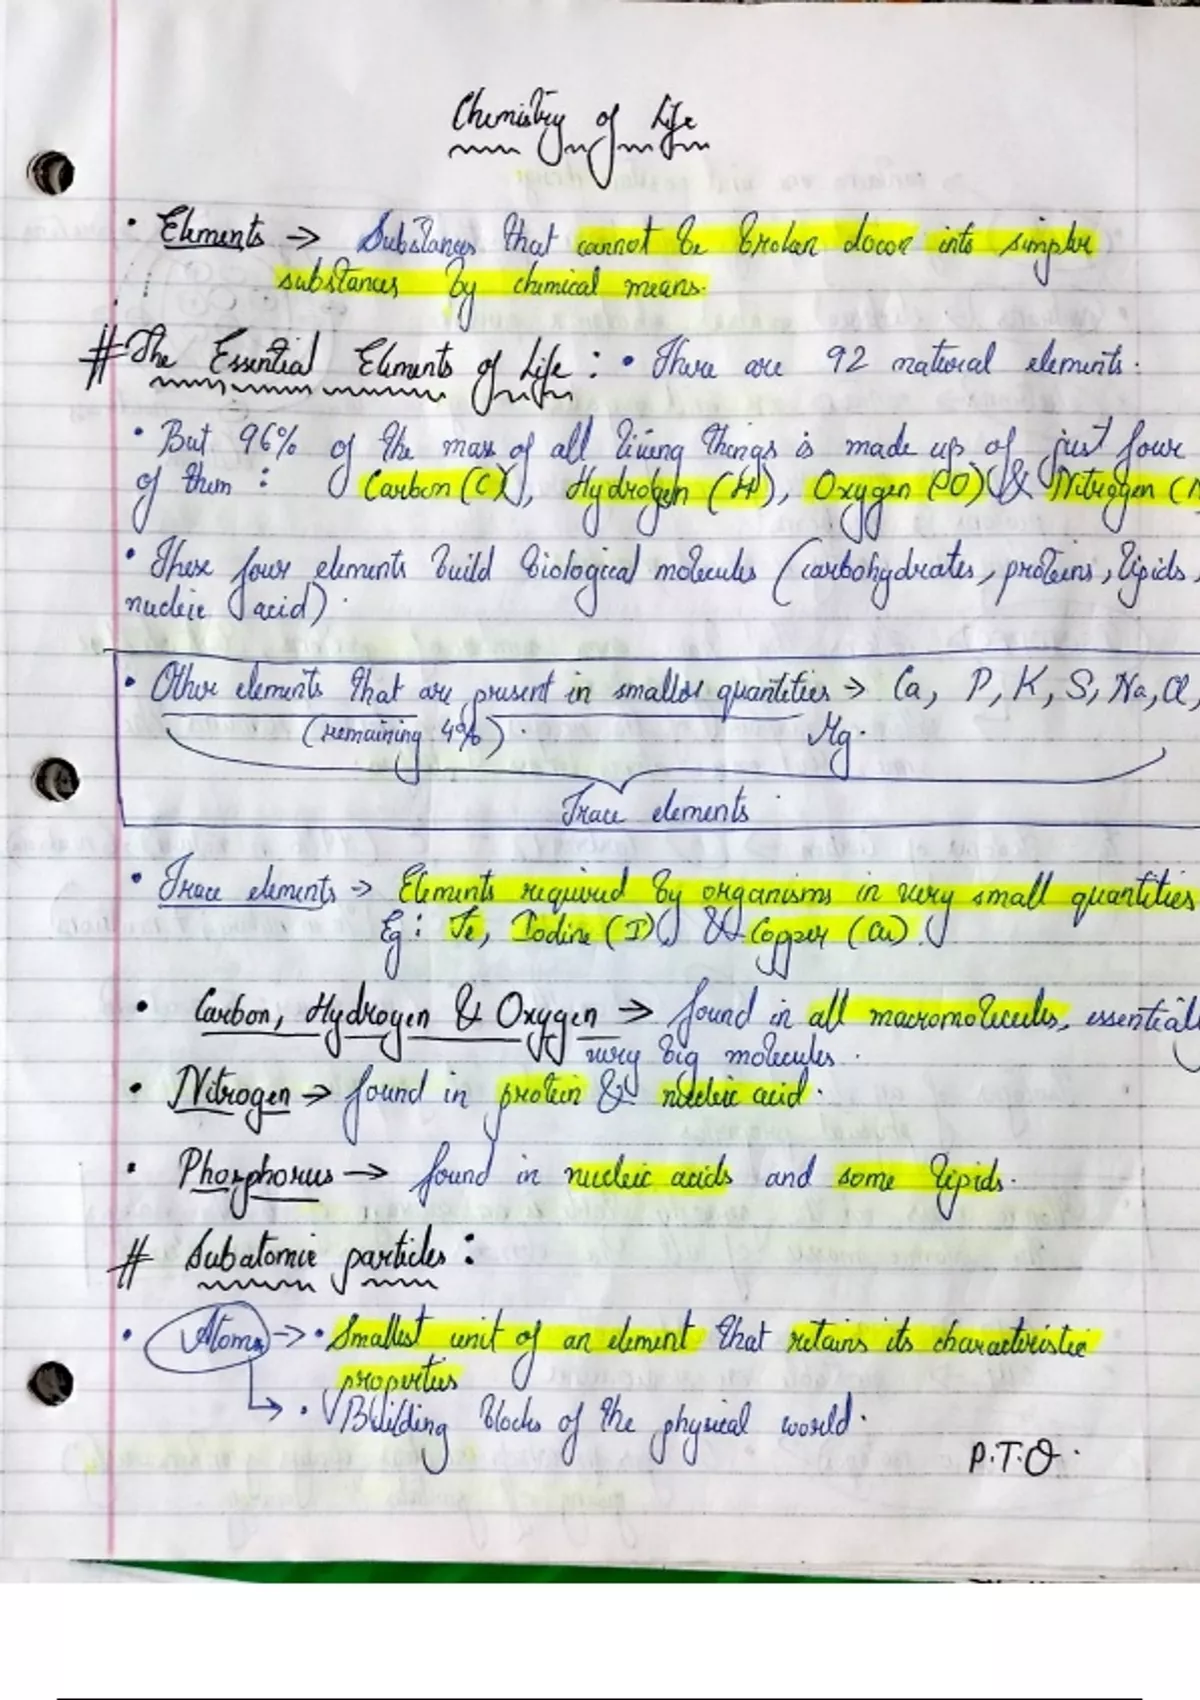 Chemistry of Life
• Elements → Substances that cannot be broken down into simpler
substances by chemical means.
# The Essential Elements of Life : • There are 92 natural elements.
• But 96% of the mass of all living things is made up of just four
of them : Carbon (C), Hydrogen (H), Oxygen (O) & Nitrogen (N
• These four elements build biological molecules (carbohydrates, proteins, lipids,
nucleic acid).
• Other elements that are present in smaller quantities → Ca, P, K, S, Na, Cl,
(remaining 4%). Mg.
Trace elements
• Trace elements → Elements required by organisms in very small quantities
Eg : Fe, Iodine (I), & Copper (Cu).
• Carbon, Hydrogen & Oxygen → found in all macromolecules, essentiall
very big molecules.
• Nitrogen → found in protein & nucleic acid.
• Phosphorus → found in nucleic acids and some lipids.
# Subatomic particles :
• Atoms → • Smallest unit of an element that retains its characteristic
properties
↳ • Building blocks of the physical world.
P.T.O.